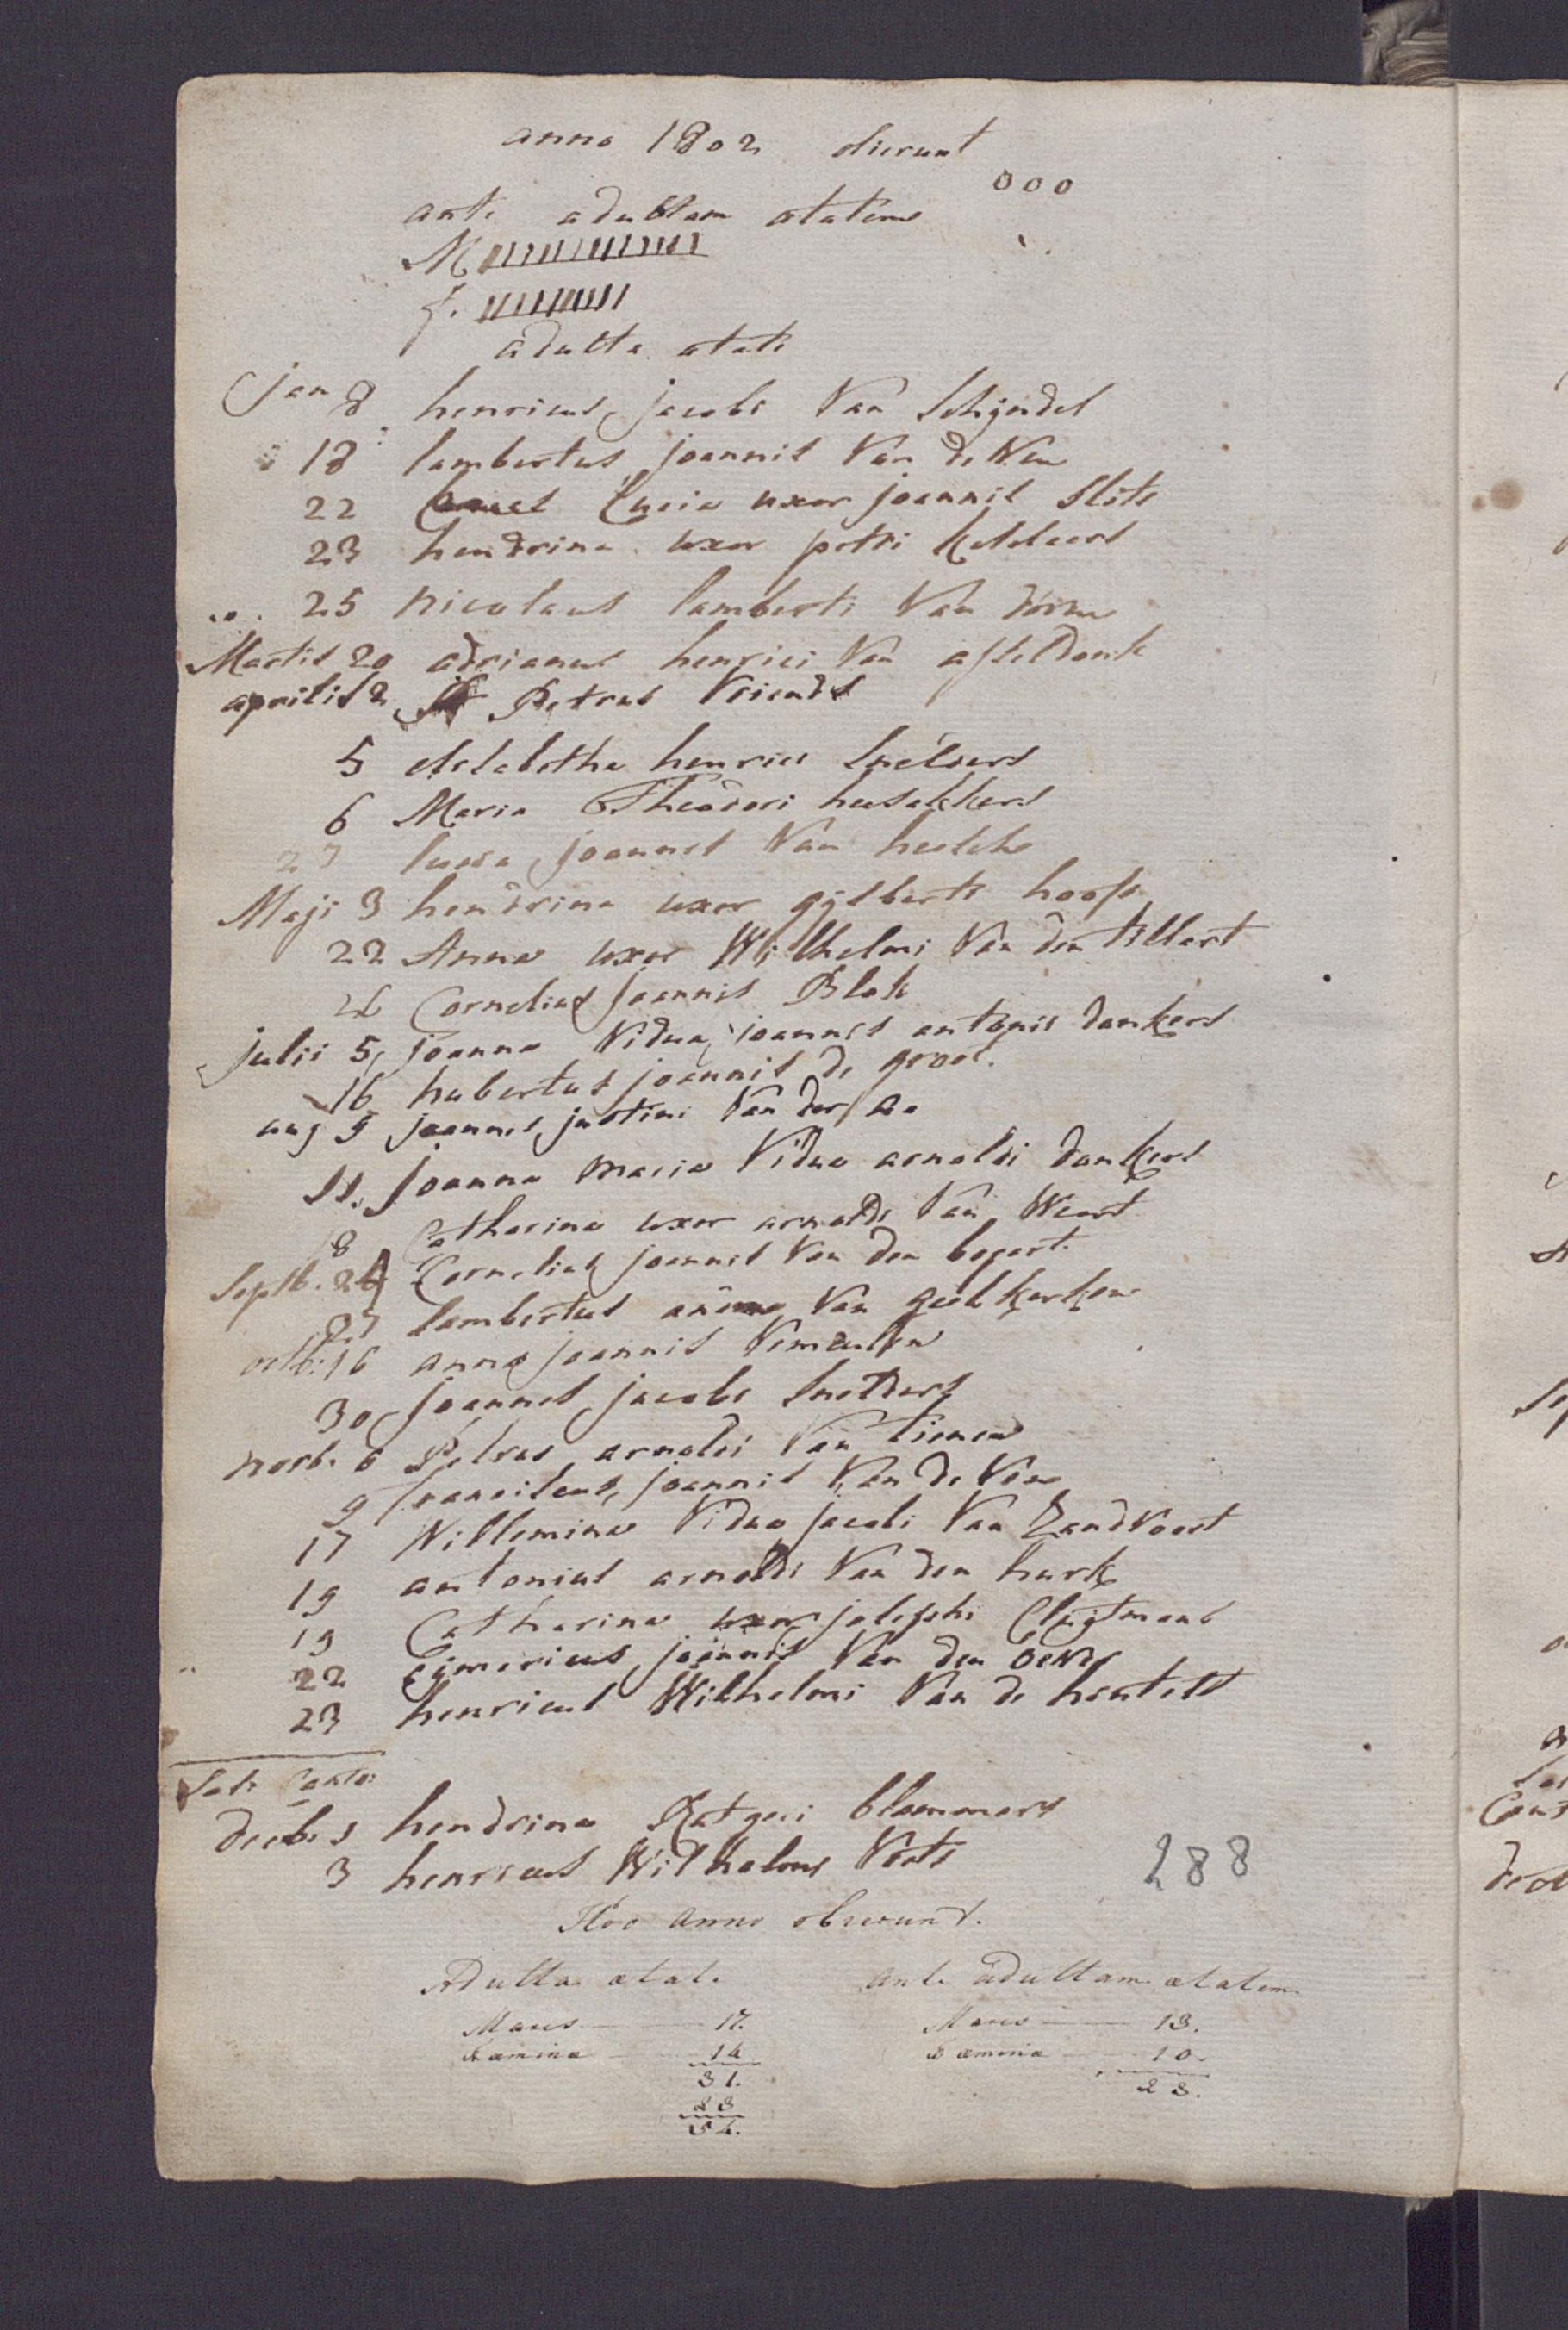 anno 1802 obierunt
000
ante adultam ætatem
M IIIIIIIIIIIII
f. IIIIIIIIII
adulta ætate
jan 8 henricus jacobi Van Schijndel
18 lambertus joannis Van de Ven
22 Lucia uxor joannis Slits
23 hendrina uxor petri Ketelaers
25 nicolaus lamberti Van
Martis 20 adrianus henrici Van asseldonk
aprilis 2 Petrus Vriends
5 elisabetha henrici Snelaers
6 Maria Theodori heesakkers
27 lucia joannis Van
Maji 3 hendrina uxor gijsberti hoofs
22 Anna uxor Wilhelmi Van den tillart
26 Cornelius joannis Blok
julii 5 joanna Vidua joannis antonii donkers
16 hubertus joannis de groot.
aug 5 joannes justini Van der Aa
11. joanna maria Vidua arnoldi donkers
18 Catharina uxor arnoldi Van Weert
Septb. 24 Cornelius joannis Van den bogert.
27 lambertus Van geelkerken
octb. 16 anna joannis Vermeulen
30 joannes jacobi Snetders
novb. 6 Petrus arnoldi Van tienen
9 franciscus joannis Van de Ven
17 Willemina Vidua jacobi Van Zandvoort
19 antonius arnoldi Van den hurk
19 Catharina uxor josephi Clugtmans
22 eijmerius joannis Van den oever
23 henricus Wilhelmi Van de hentelt
decb. 1 hendrina Rutgeri bloemmers
3 henricus Wilhelmi Vorts
288
Hoc anno obierunt.
Adulta ætat.
Ante adultam ætatem.
Mares 17.
Mares 13.
Fæminæ 14
Fæminæ 10.
31.
23.
23
54.